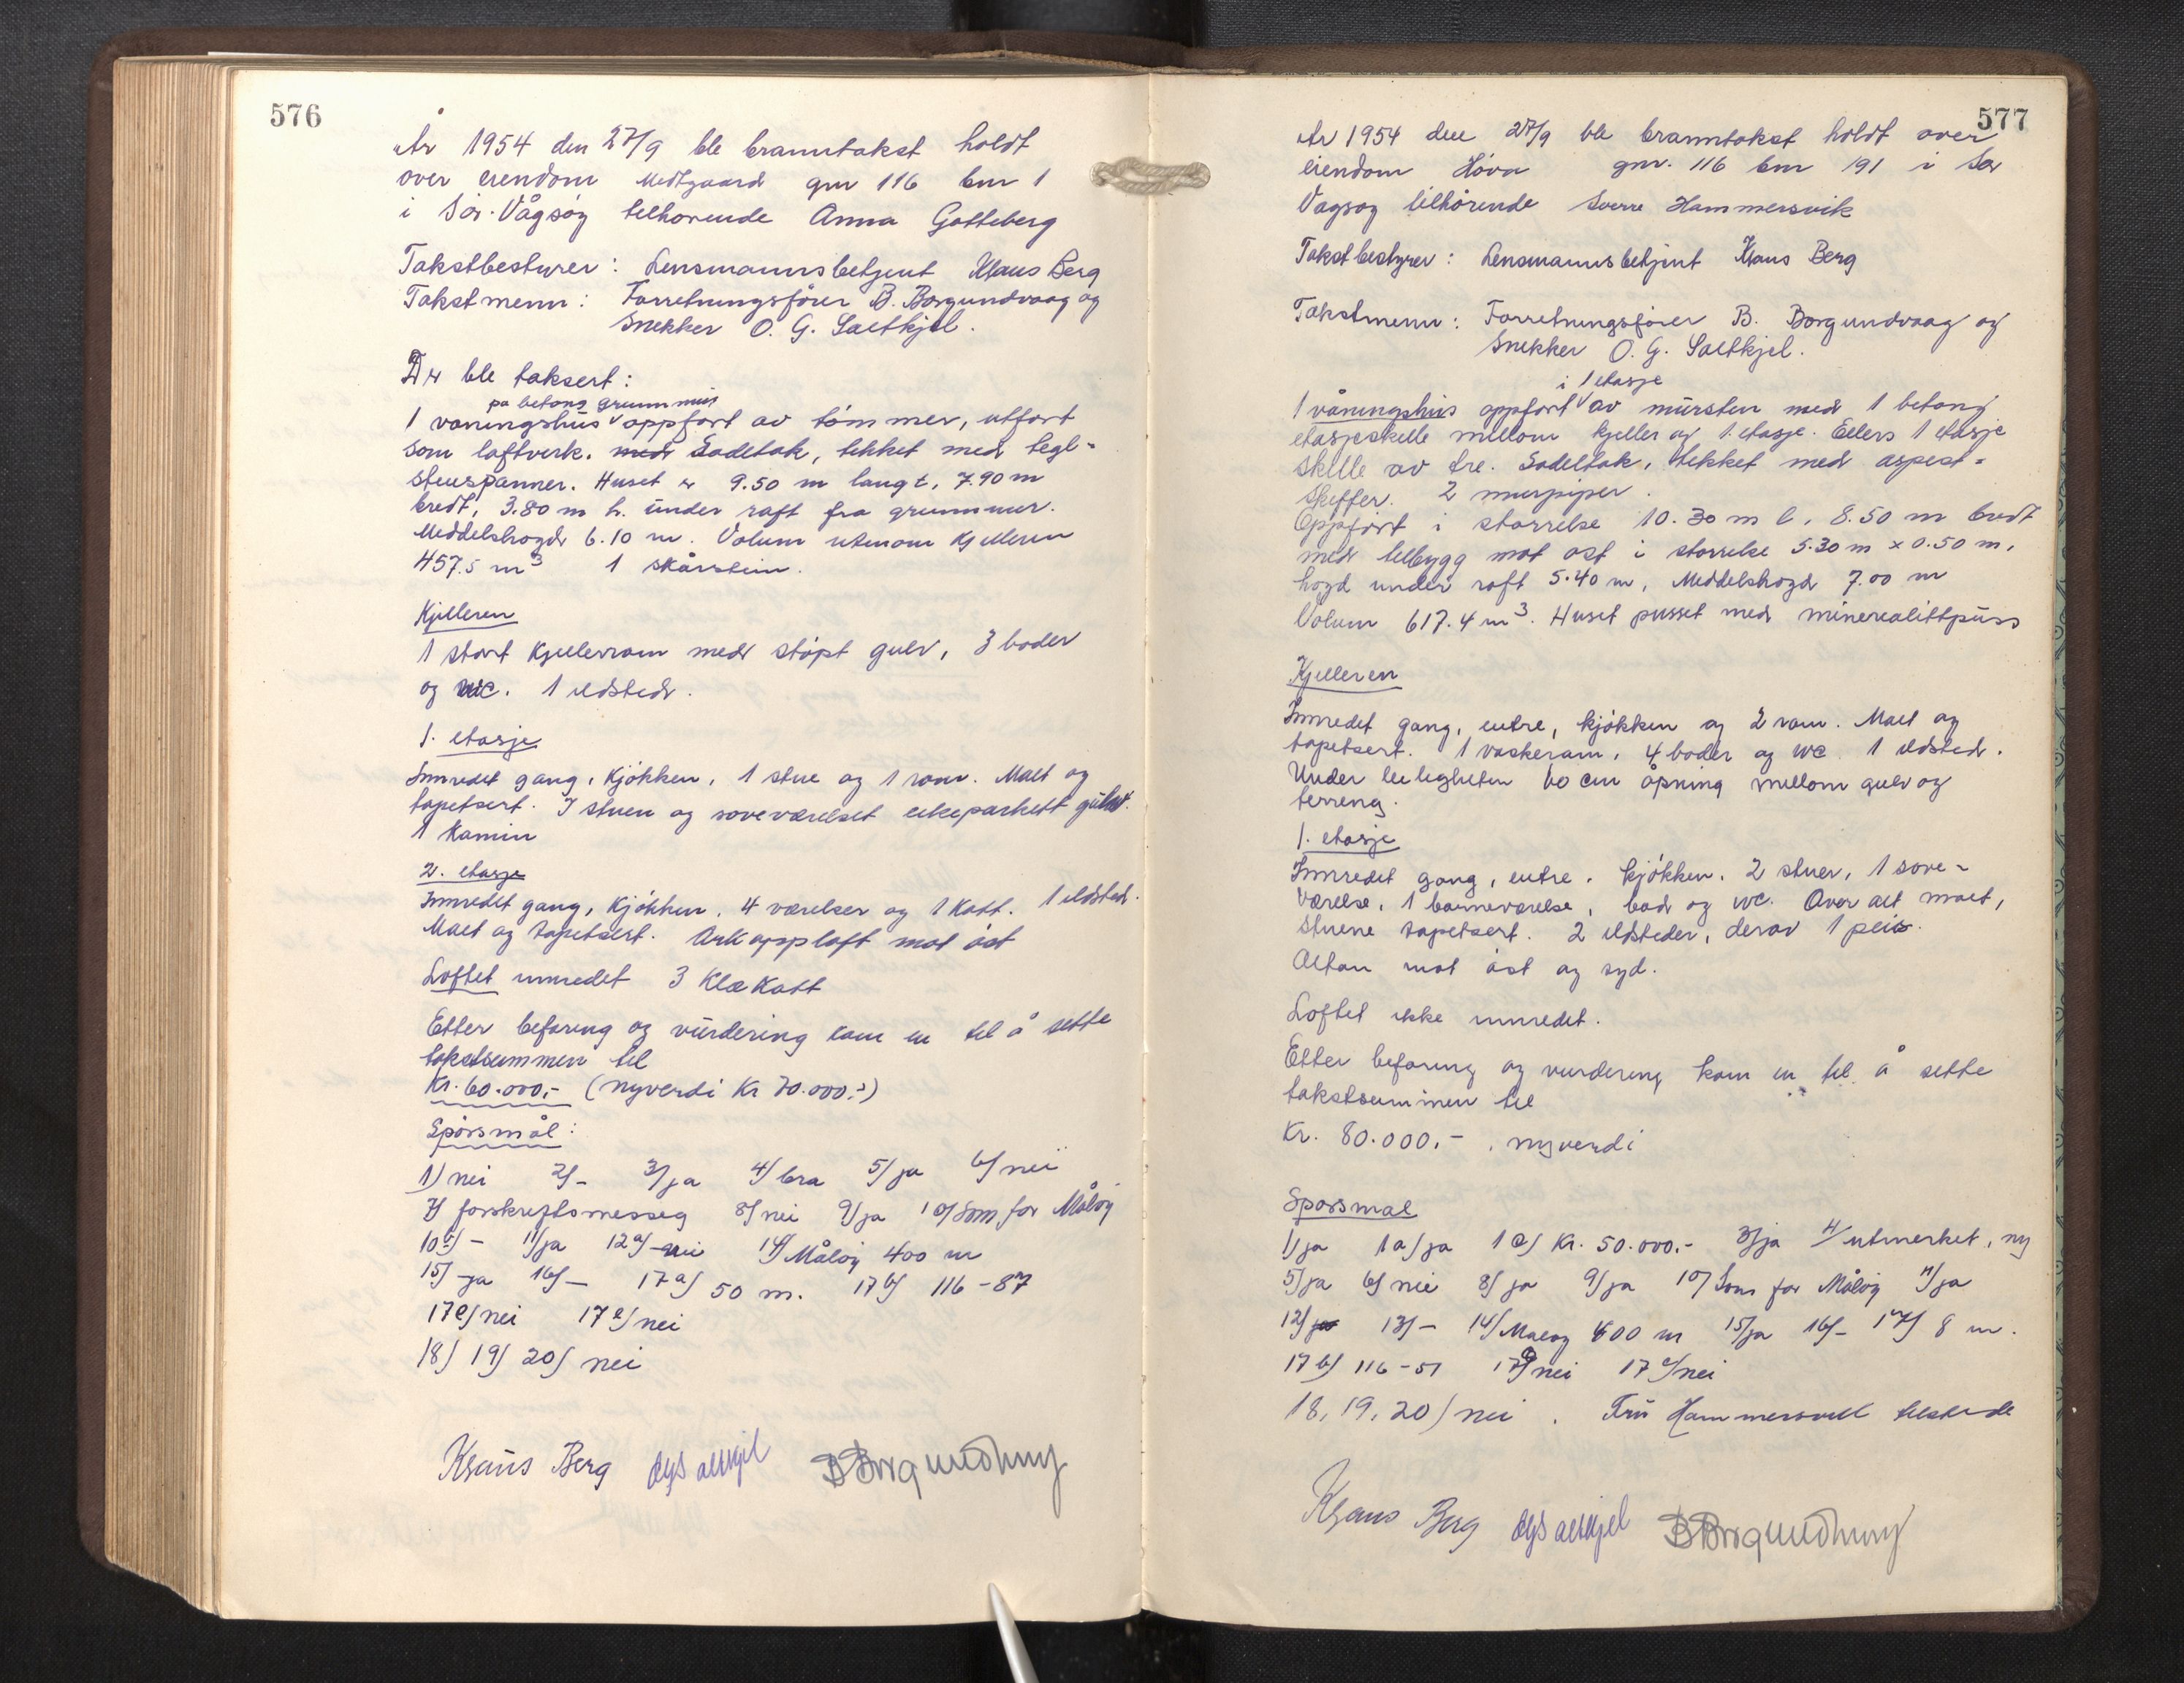 576
År 1954 den 27/9 ble branntakst holdt
over eiendom Medtgaard gnr 116 bnr 1
i Sør-Vågsøy tilhørende Anna Gotteberg
Takstbestyrer: Lensmannsbetjent Klaus Berg
Takstmenn: Forretningsfører B. Borgundvaag og
Snekker O. G. Saltkjel.
Der ble taksert:
på betong grunnmur
1 våningshus oppført av tømmer, utført
som laftverk. med Sadeltak, tekket med tegl-
stenspanner. Huset er 9.50 m langt, 7.90 m
bredt, 3.80 m h. under raft fra grunnmur.
Middelshøgd 6.10 m. Volum utenom kjelleren
457.5 m3 1 skårstein.
Kjelleren
1 stort kjellerrom med støpt gulv, 3 boder
og wc. 1 ildsted.
1. etasje
Innredet gang, kjøkken, 1 stue og 1 rom. Malt og
tapetsert. I stuen og soveværelset eikeparkett gulv.
1 kamin
2. etasje
Innredet gang, kjøkken, 4 værelser og 1 kott. 1 ildsted.
Malt og tapetsert. Ark oppløft mot øst
Loftet innredet 3 klekott
Etter befaring og vurdering kom en til å sette
takstsummen til
Kr. 60.000,- (nyverdi Kr 70.000,-)
Spørsmål:
1) nei 2/- 3/ja 4/bra 5/ja 6/nei
7/ forskriftsmesseg 8/nei 9/ja 10/Som for Måløy
10b/- 11/ja 12a/-nei 14/Måløy 400 m
15/ ja 16/- 17a/ 50 m. 17b/ 116-87
17c/nei 17e/nei
18/ 19/ 20/ nei
Klaus Berg OGSaltkjel BBorgundvaag
577
År 1954 den 27/9 ble branntakst holdt over
eiendom Hova gnr. 116 bnr 191 i Sør
Vågsøy tilhørende Sverre Hammersvik
Takstbestyrer: Lensmannsbetjent Klaus Berg
Takstmenn: Forretningsfører B. Borgundvaag og
Snekker O. G. Saltkjel.
i 1 etasje
1 våningshus oppført av mursten med 1 betong
etasjeskille mellom kjeller og 1. etasje. Ellers 1 etasje
skille av tre. Sadeltak, tekket med aspest-
skiffer. 2 murpiper.
Oppført i størrelse 10.30 m l, 8.50 m bredt
med tilbygg mot øst i størrelse 5.30 m x 0.50 m,
høgd under raft 5.40 m, Middelshøgd 7.00 m
Volum 617.4 m3. Huset pusset med minerealittpuss
Kjelleren
Innredet gang, entre, kjøkken og 2 rom. Malt og
tapetsert. 1 vaskerom, 4 boder og wc 1 ildsted.
Under leiligheten 60 cm åpning mellom gulv og
terreng.
1. etasje
Innredet gang, entre, kjøkken, 2 stuer, 1 sove-
værelse, 1 barneværelse, bad og wc. Over alt malt,
stuene tapetsert. 2 ildsteder, derav 1 peis.
Altan mot øst og syd.
Loftet ikke innredet.
Etter befaring og vurdering kom en til å sette
takstsummen til
Kr. 80.000.- , nyverdi
Spørsmål
1/ja 1a/ja 1c/ Kr. 50.000.- 3/ja 4/utmerket, ny
5/ja 6/nei 8/ja 9/ja 10/Som for Måløy 11/ja
12/ja 13/- 14/Måløy 400 m 15/ja 16/- 17/ 8 m.
17b/ 116-51 17c/nei 17e/nei
18, 19, 20/ nei. Fru Hammersvik tilstede
Klaus Berg OGSaltkjel BBorgundvaag